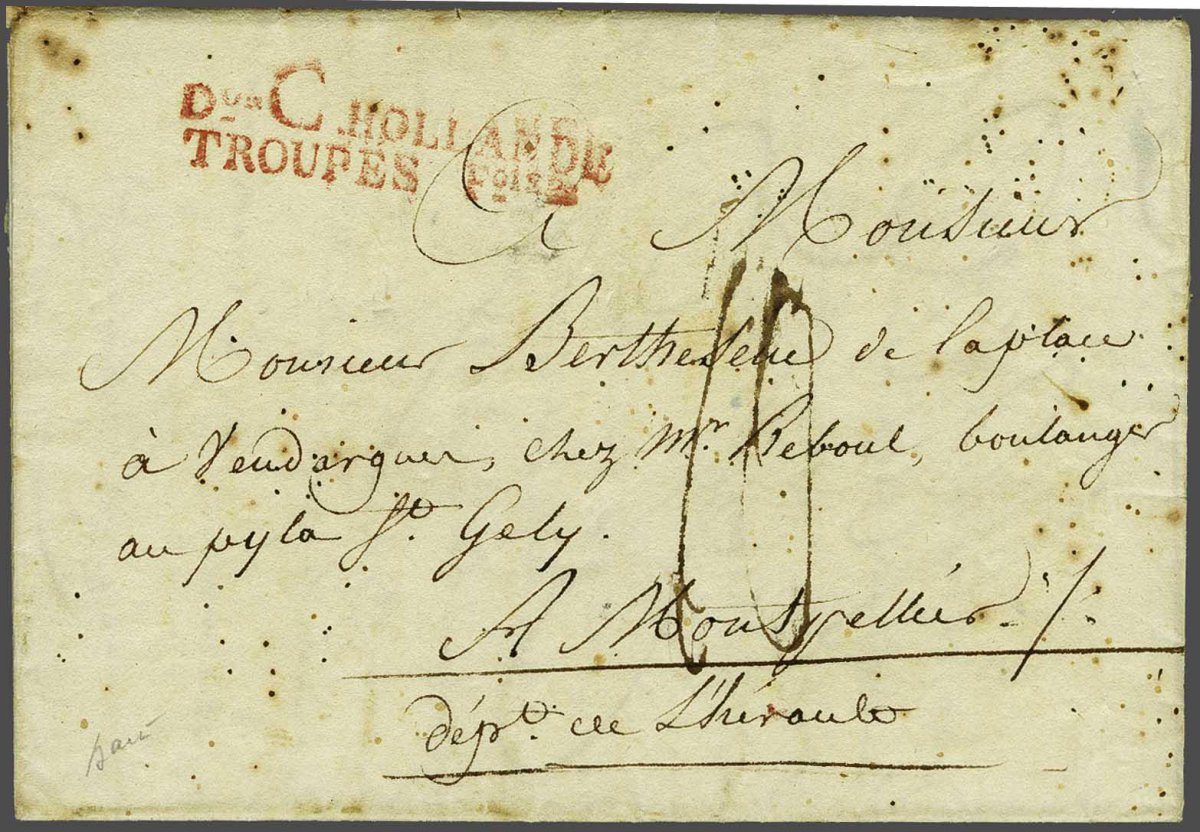 Don C HOLLANDE
TROUPES Foises
A Monsieur
Monsieur Berthesene de laplace
à Vendargues, chez Mr. Reboul, boulanger
au pyla St. Gely.
A Montpellier
dépt. de L'hérault